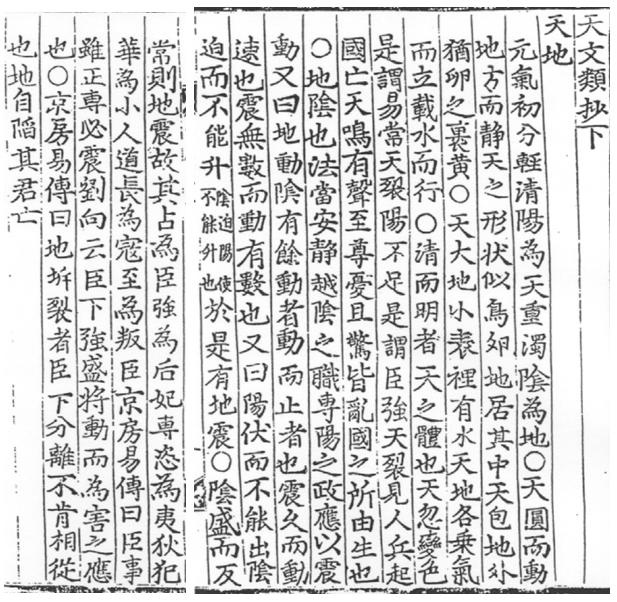 天文類抄下
天地
元氣初分輕清陽爲天重濁陰爲地○天圓而動
地方而静天之形状似鳥卵地居其中天包地外
猶卵之裹黄○天大地小表裡有水天地各乗氣
而立載水而行○清而明者天之體也天忽變色
是謂易常天裂陽不足是謂臣強天裂見人兵起
國亡天鳴有聲至尊憂且驚皆亂國之所由生也
○地陰也法當安静越陰之職專陽之政應以震
動又曰地動陰有餘動者動而止者也震久而動
速也震無數而動有數也又曰陽伏而不能出陰
迫而不能升陰迫陽使不能升也於是有地震○陰盛而反
常則地震故其占爲臣強爲后妃専恣爲夷狄犯
華爲小人道長爲寇至爲叛臣京房易傳曰臣事
雖正専必震劉向云臣下強盛将動而爲害之應
也○京房易傳曰地坼裂者臣下分離不肯相從
也地自陷其君亡